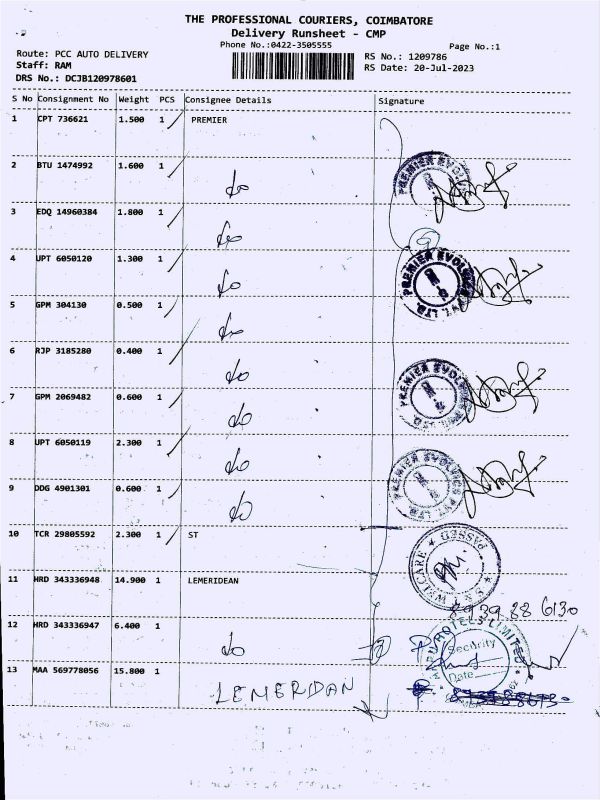 THE PROFESSIONAL COURIERS, COIMBATORE
Delivery Runsheet - CMP
Phone No.:0422-3505555
Page No.:1
Route: PCC AUTO DELIVERY
RS No.: 1209786
Staff: RAM
RS Date: 20-Jul-2023
DRS No.: DCJB120978601
S No Consignment No Weight PCS Consignee Details Signature
1 CPT 736621 1.500 1 PREMIER
2 BTU 1474992 1.600 1 do
PREMIER EVOLVICS
3 EDQ 14960384 1.800 1 do
4 UPT 6050120 1.300 1 do
PREMIER EVOLVICS PVT. LTD.
5 GPM 304130 0.500 1 do
6 RJP 3185280 0.400 1 do
7 GPM 2069482 0.600 1 do
PREMIER EVOLVICS PVT. LTD.
8 UPT 6050119 2.300 1 do
9 DDG 4901301 0.600 1 do
PREMIER EVOLVICS PVT. LTD.
10 TCR 29805592 2.300 1 ST
PASSED
WELCARE
11 HRD 343336948 14.900 1 LEMERIDEAN
8939 88 6130
12 HRD 343336947 6.400 1 do
HOTELS LIMITED
Security
Date
13 MAA 569778056 15.800 1 LEMERIDAN